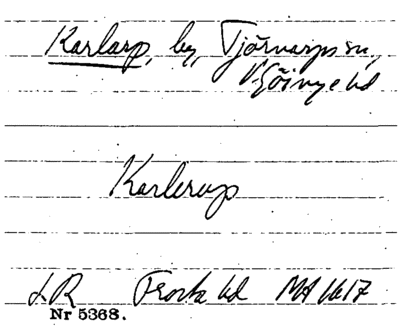 Karlarp, by, Tjörnarps sn,
V. Göinge hd
Karlerup
LR Frosta hd MA 1617
Nr 5368.